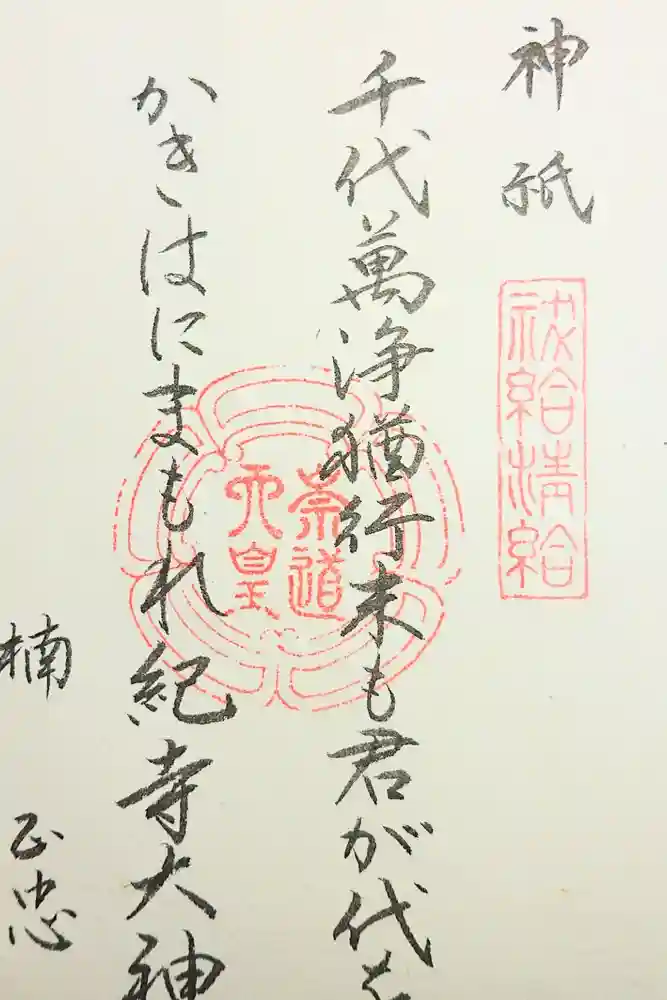 神祇
祓給清給
千代萬浄猶行末も君が代を
崇道
天皇
かきはにまもれ紀寺大神
楠
正忠